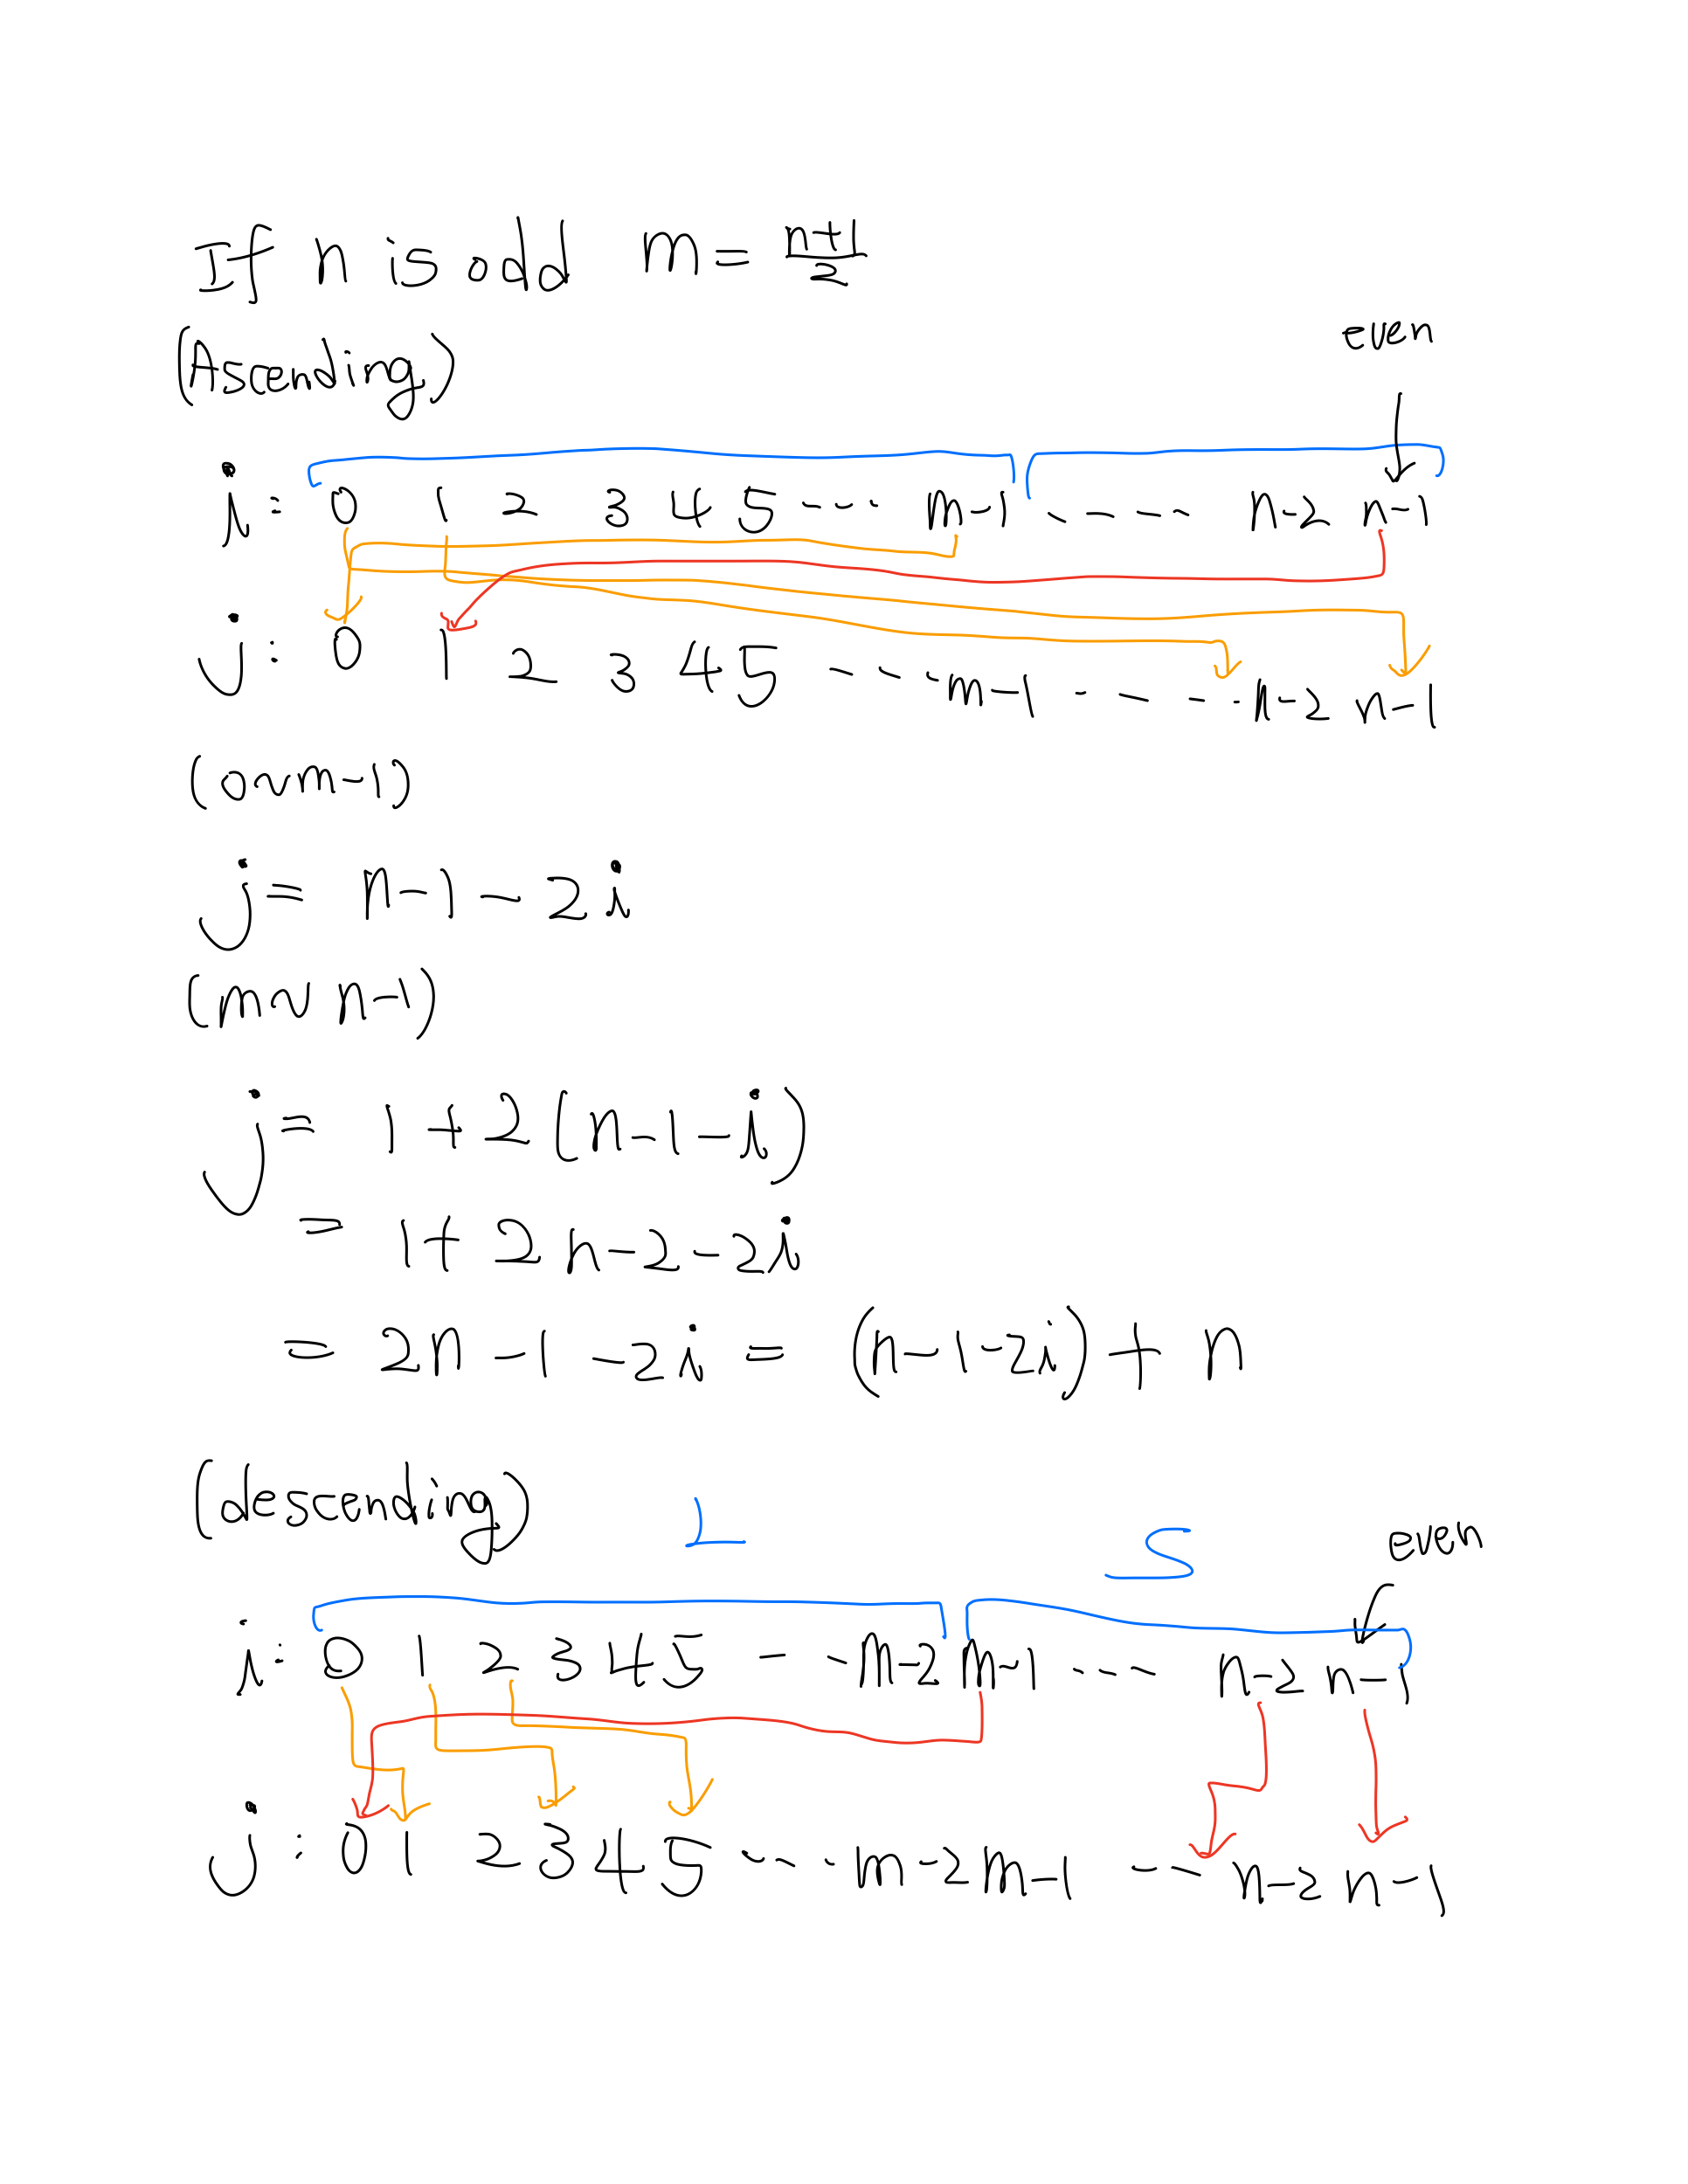 If n is odd m = n+1/2
(Ascending)
even
i: 0 1 2 3 4 5 --- m-1 ---- n-2 n-1
j: 0 1 2 3 4 5 --- m-1 ---- n-2 n-1
(0~m-1)
j = n-1-2i
(m~n-1)
j = 1+2(n-1-i)
= 1+2n-2-2i
= 2n-1-2i = (n-1-2i)+n
(descending)
L S even
i: 0 1 2 3 4 5 --- m-2 m-1 --- n-2 n-1
j: 0 1 2 3 4 5 --- m-2 m-1 --- n-2 n-1